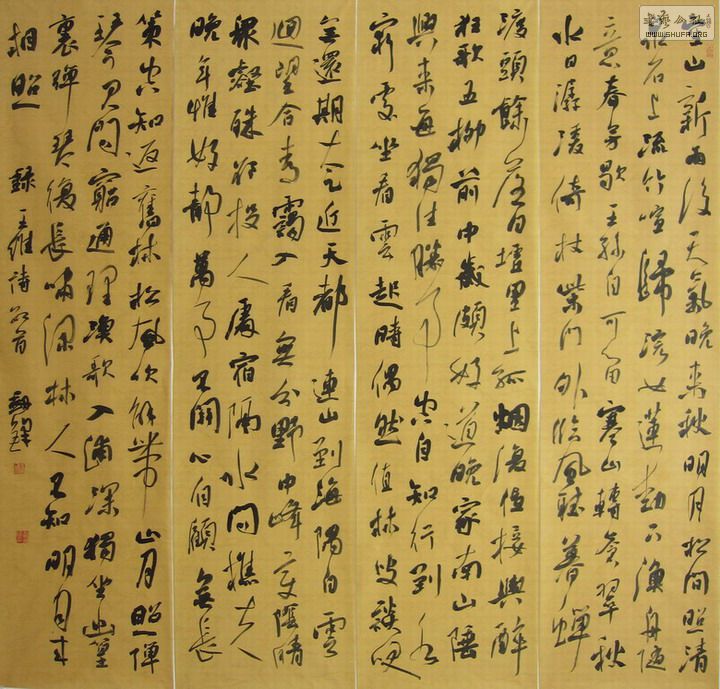 空山新雨後天氣晚来秋明月松间照清
泉石上流竹喧歸浣女蓮動下漁舟随
意春芳歇王孫自可留寒山轉蒼翠秋
水日潺湲倚杖柴门外临風聴暮蝉
渡頭餘落日墟里上孤烟復值接輿醉
狂歌五柳前中歲頗好道晚家南山陲
興来每獨往勝事空自知行到水
窮處坐看雲起時偶然值林叟談笑
無還期太乙近天都連山到海隅白雲
迴望合青靄入看無分野中峰變陰晴
眾壑殊欲投人處宿隔水問樵夫
晚年惟好静萬事不關心自顧無長
策空知返舊林松風吹解带山月照弹
琴君問窮通理漁歌入浦深獨坐幽篁
裏弹琴復長嘯深林人不知明月来
相照
錄王維詩数首
WWW.SHUFA.ORG